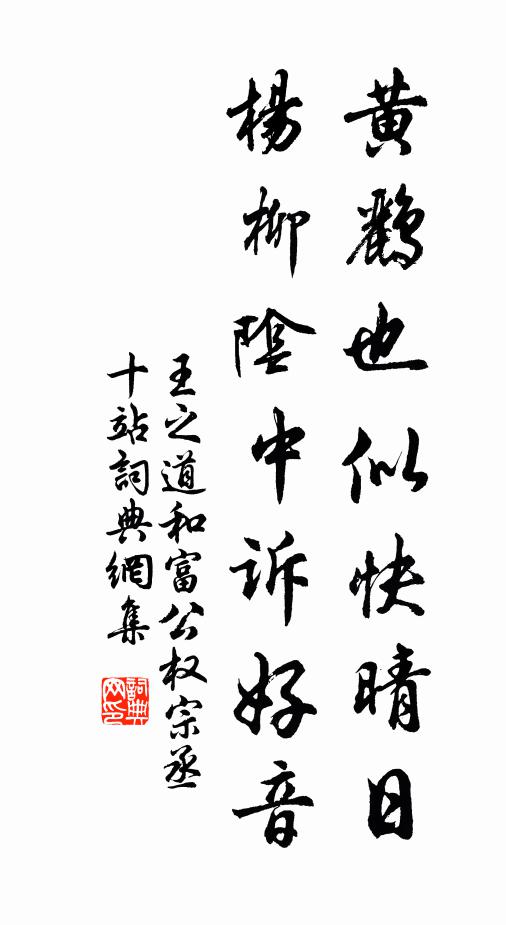 黃鸝也似快晴日
楊柳陰中訴好音
王之道和富公权宗丞
十站詞典網集
詞典網印